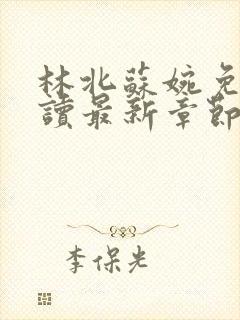 林北蘇婉免
讀最新章節
李保光